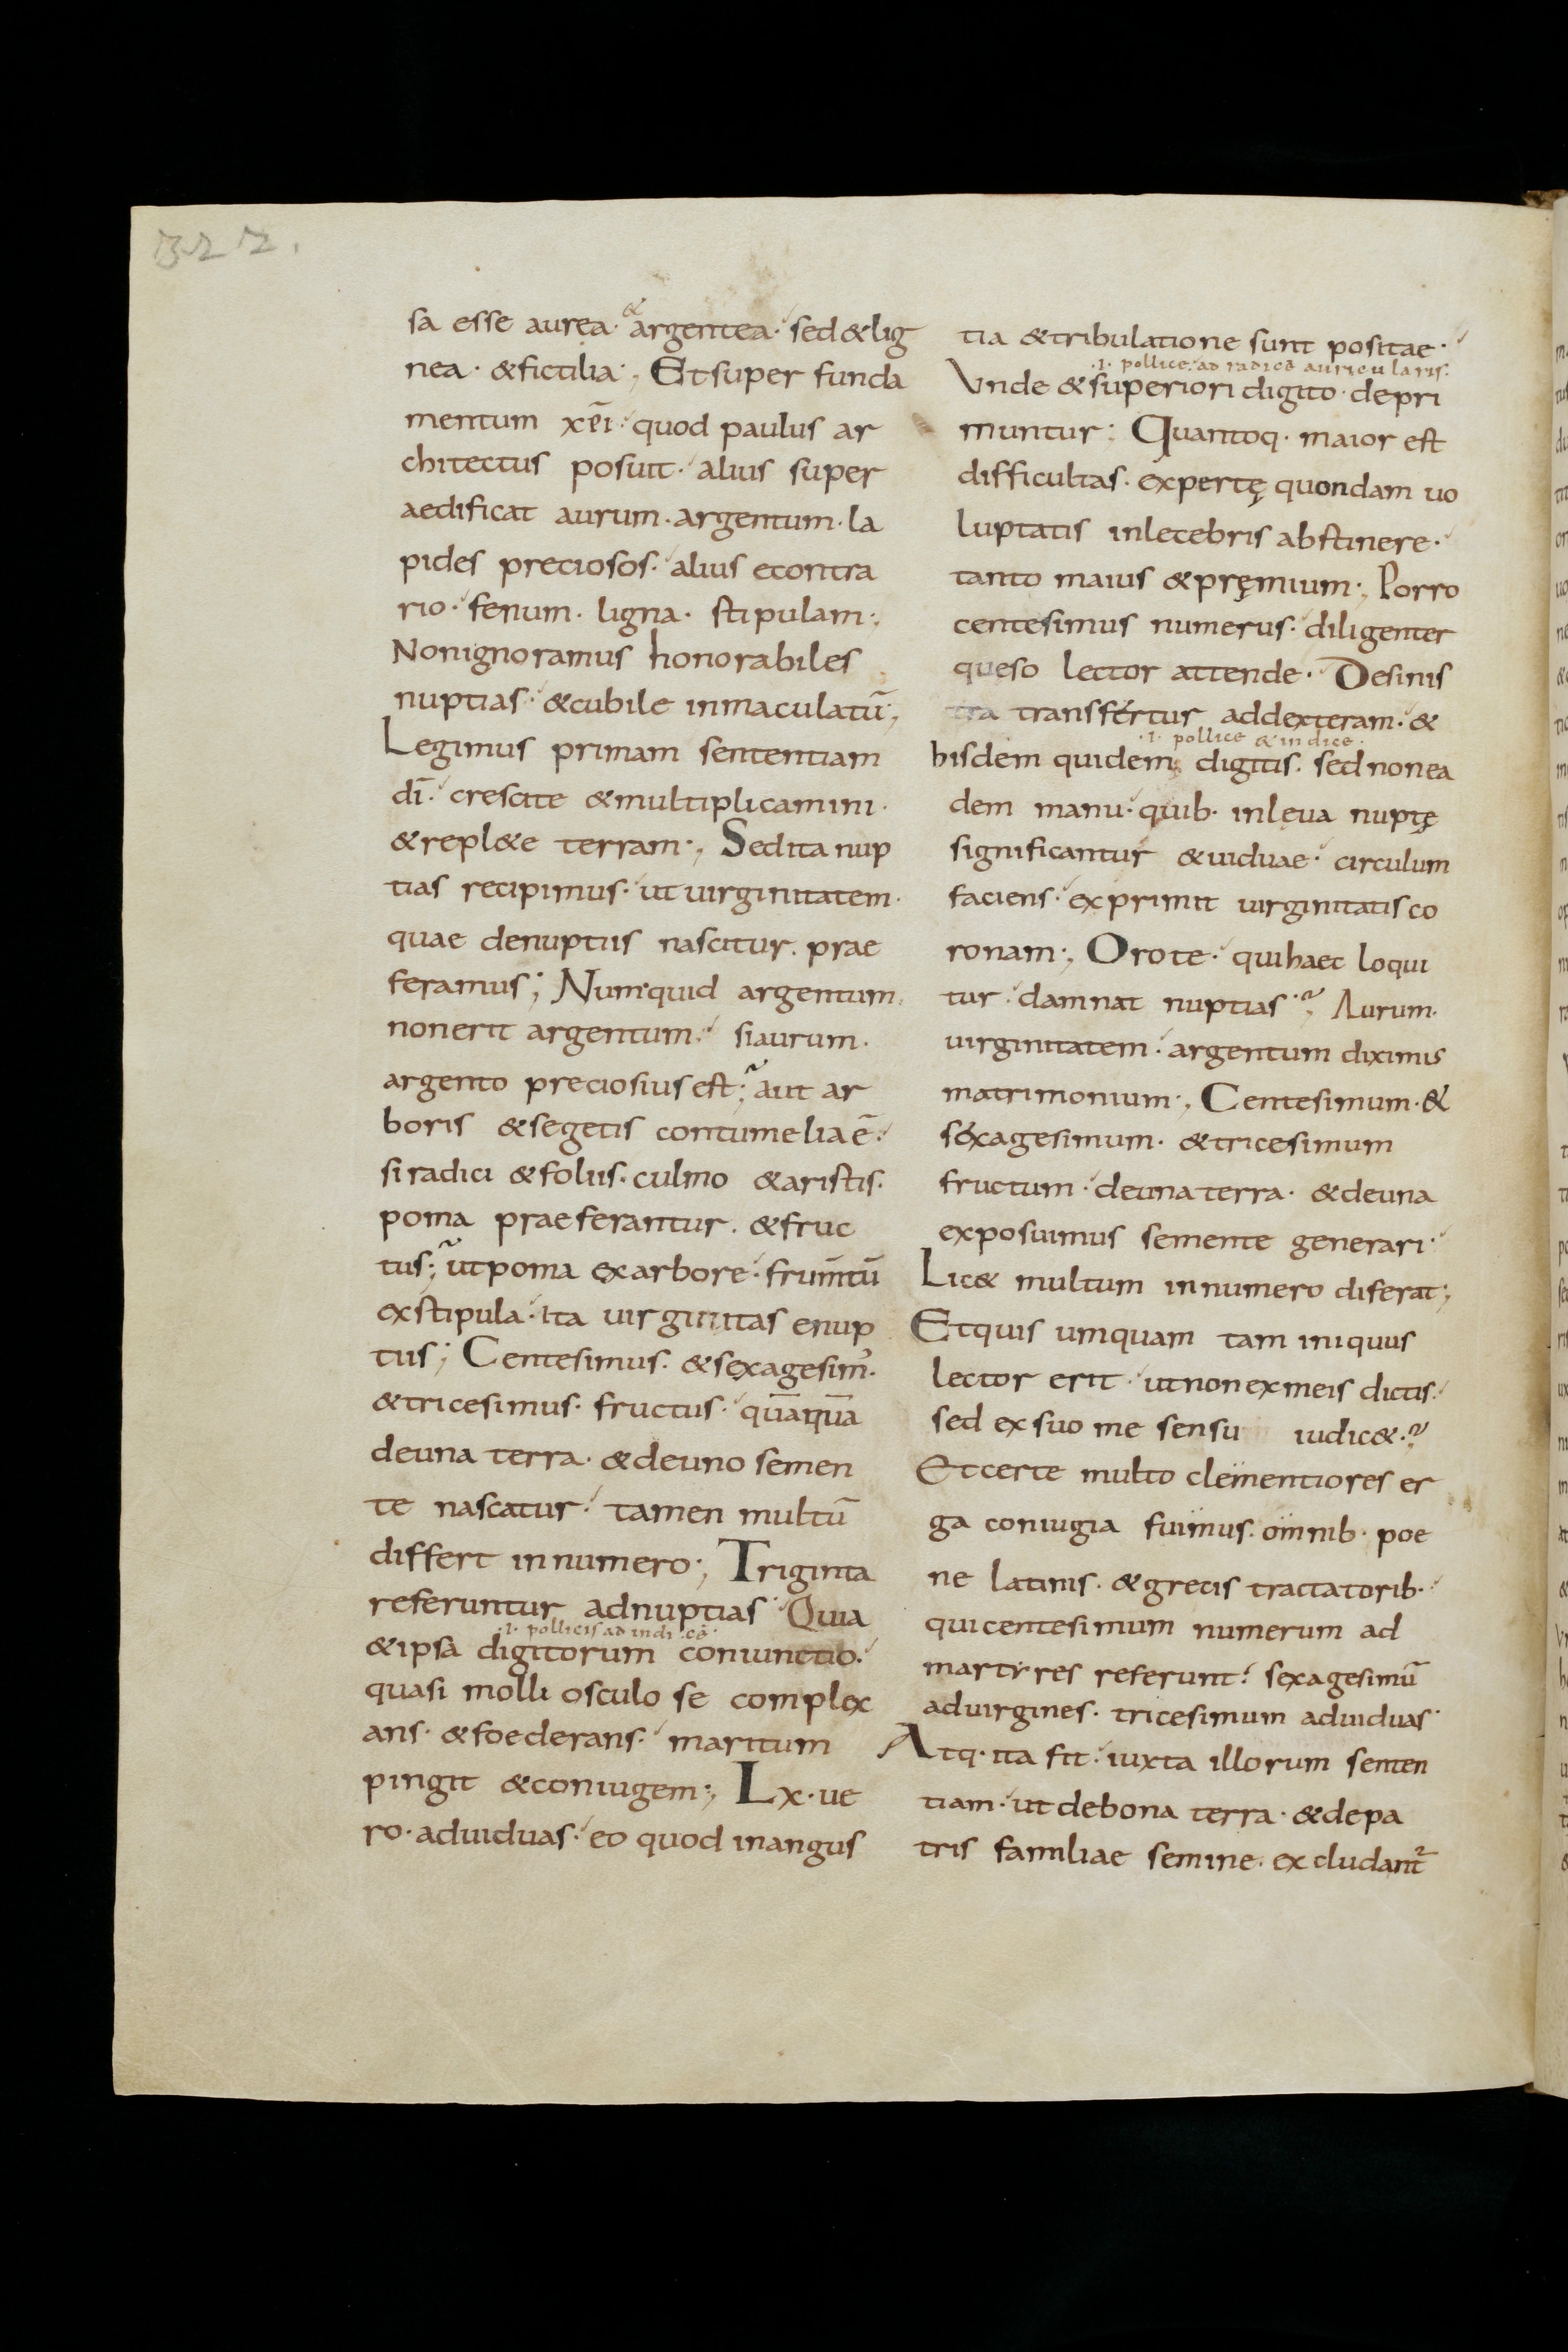 322.
sa esse aurea · & argentea · sed & lig
nea · & fictilia ·; Et super funda
mentum xp̄i · quod paulus ar
chitectus posuit · alius super
aedificat aurum · argentum · la
pides preciosos · alius econtra
rio · fenum · ligna · stipulam ·;
Non ignoramus honorabiles
nuptias · & cubile inmaculatū ·;
Legimus primam sententiam
dī · crescite & multiplicamini ·
& repl&e terram ·; Sed ita nup
tias recipimus · ut uirginitatem ·
quae de nuptiis nascitur · prae
feramus ·; Numquid argentum
non erit argentum · si aurum ·
argento preciosius est ·; aut ar
boris & segetis contumelia ē ·
si radici & foliis · culmo & aristis ·
poma praeferantur · & fruc
tus ·; ut poma ex arbore · frum̄tū
ex stipula · ita uirginitas e nup
tiis ·; Centesimus · & sexagesim᾿ ·
& tricesimus · fructus · quāquā
de una terra · & de uno semen
te nascatur · tamen multū
differt in numero ·; Triginta
referuntur ad nuptias · Quia
·i· pollicis ad indicē ·
& ipsa digitorum coniunctio ·
quasi molli osculo se complex
ans · & foederans · maritum
pingit & coniugem ·; Lx · ue
ro · ad uiduas · eo quod in angus
tia & tribulatione sunt positae ·
·i· pollice · ad radicē auricularis ·
Vnde & superiori digito · depri
muntur ·; Quantoq · maior est
difficultas · expertę quondam uo
luptatis inlecebris abstinere ·
tanto maius & pręmium ·; Porro
centesimus numerus · diligenter
queso lector attende · De sinis
tra transfértur ad dexteram · &
·i· pollice & indice ·
hisdem quidem digitis · sed non ea
dem manu · quib · in lęua nuptę
significantur & uiduae · circulum
faciens · exprimit uirginitatis co
ronam ·; Oro te · qui haec loqui
tur · damnat nuptias ·; Aurum ·
uirginitatem · argentum diximus
matrimonium ·; Centesimum · &
séxagesimum · & tricesimum
fructum · de una terra · & de una
exposuimus semente generari ·
Lic& multum in numero diferat ·;
Et quis umquam tam iniquus
lector erit · ut non ex meis dictis ·
sed ex suo me sensu iudic& ·;
Et certe multo clementiores er
ga coniugia fuimus · omnib · poe
ne latinis · & grecis tractatorib ·
qui centesimum numerum ad
martyres referunt · sexagesimū
ad uirgines · tricesimum ad uiduas ·
Atq · ita fit · iuxta illorum senten
tiam · ut de bona terra · & de pa
tris familiae semine · excludant᾿